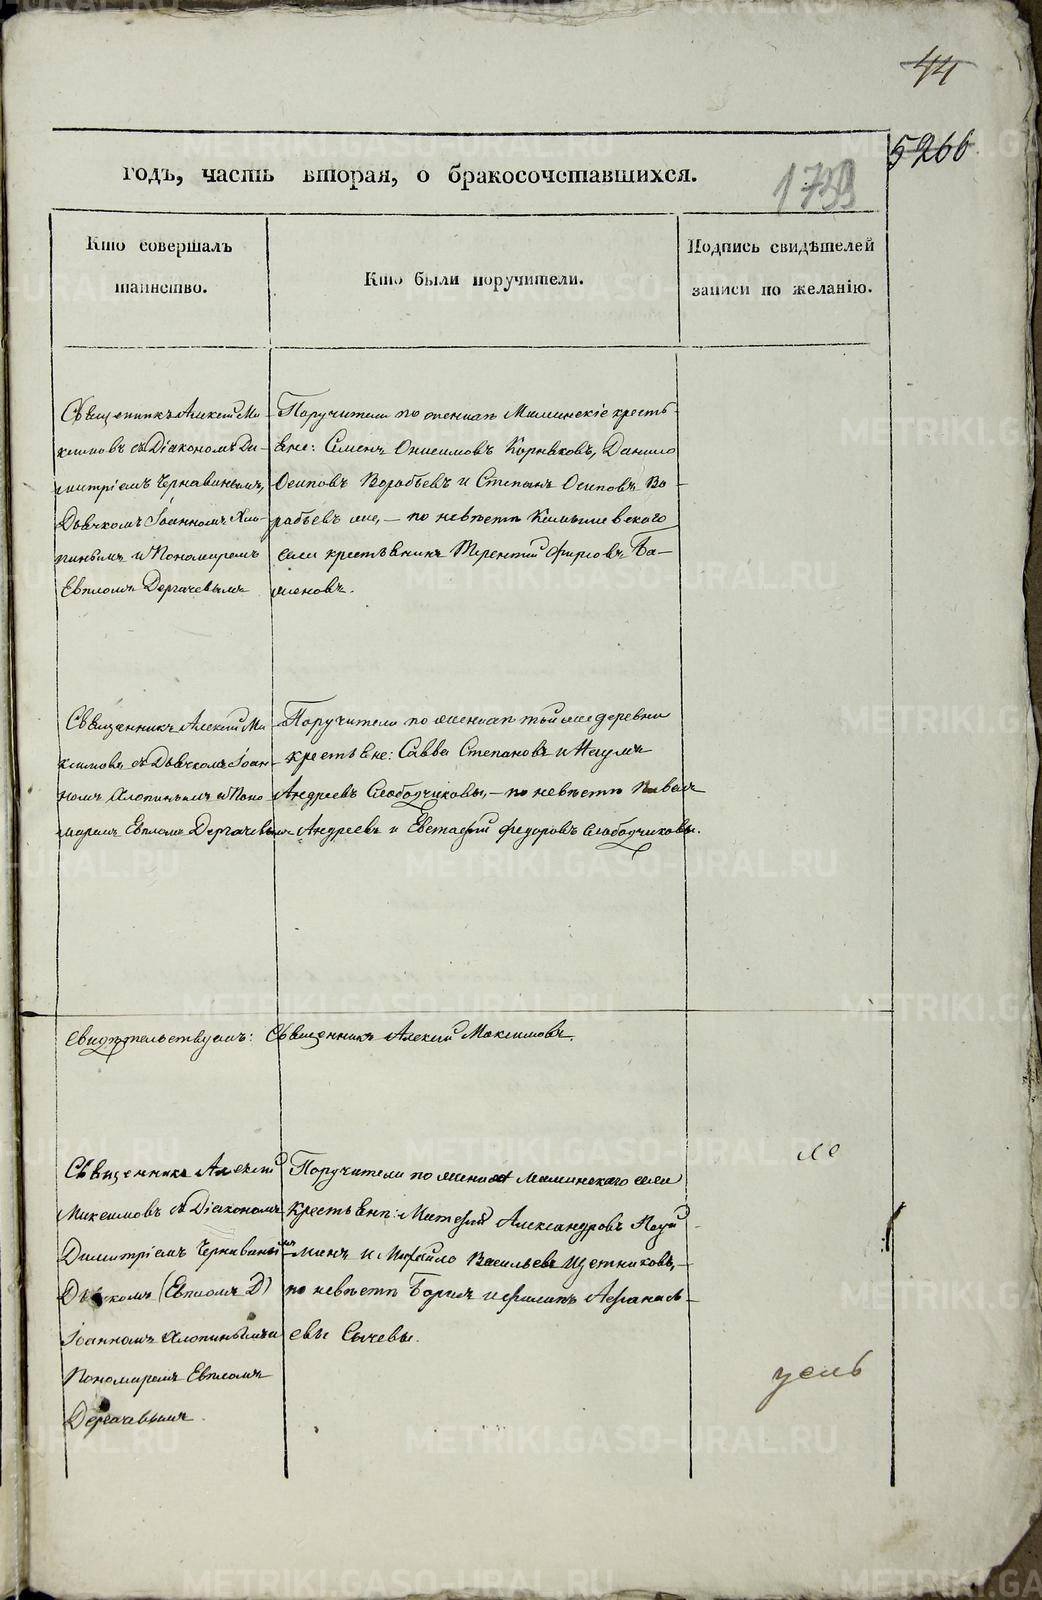 44
5266
годъ, часть вторая, о бракосочетавшихся.
1739
Кто совершалъ
таинство.
Кто были поручители.
Подпись свидѣтелей
записи по желанію.
Священникъ Алексій Ма-
ксимовъ съ Діакономъ Ди-
митріемъ Чернавинымъ,
Дьячкомъ Іоанномъ Хло-
пинымъ и Пономаремъ
Евпломъ Дергачевымъ
Поручители по женихѣ Маминскіе кресть-
яне: Семенъ Онисимовъ Коряковъ, Данило
Осиповъ Воробьевъ и Степанъ Осиповъ Во-
робьевъ же, – по невѣстѣ
села крестьянинъ Терентій Фирсовъ Ба-
женовъ.
Священникъ Алексій Ма-
ксимовъ съ Дьячкомъ Іоан-
номъ Хлопинымъ и Поно-
маремъ Евпломъ Дергачевымъ
Поручители по женихѣ той же деревни
крестьяне: Савва Степановъ и Наумъ
Андреевъ Слободчиковы, – по невѣстѣ Павелъ
Андреевъ и Евстафій Федоровъ Слободчиковы.
свидѣтельствуемъ: Священникъ Алексій Максимовъ.
Священникъ Алексій
Максимовъ съ Діакономъ
Димитріемъ Чернавинымъ
Дьячкомъ (Евпломъ Д)
Іоанномъ Хлопинымъ и
Пономаремъ Евпломъ
Дергачевымъ.
Поручители по женихѣ Маминскаго села
крестьяне: Матфей Александровъ
и Михайло Васильевъ Щетниковъ, –
по невѣстѣ Борисъ и Филипъ Афанась-
евы Сычевы.